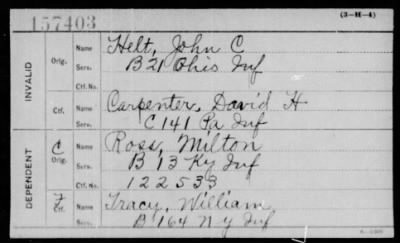 157403
(3-H-4)
INVALID
Orig.
Name Helt, John C
Serv. B 21 Ohio Inf
Ctf. No.
Ctf.
Name Carpenter, David H
Serv. C 141 Pa Inf
DEPENDENT
C
Orig.
Name Ross, Milton
Serv. B 13 Ky Inf
Ctf. No. 122533
Ctf.
Name Tracy, William
Serv. B 164 N Y Inf